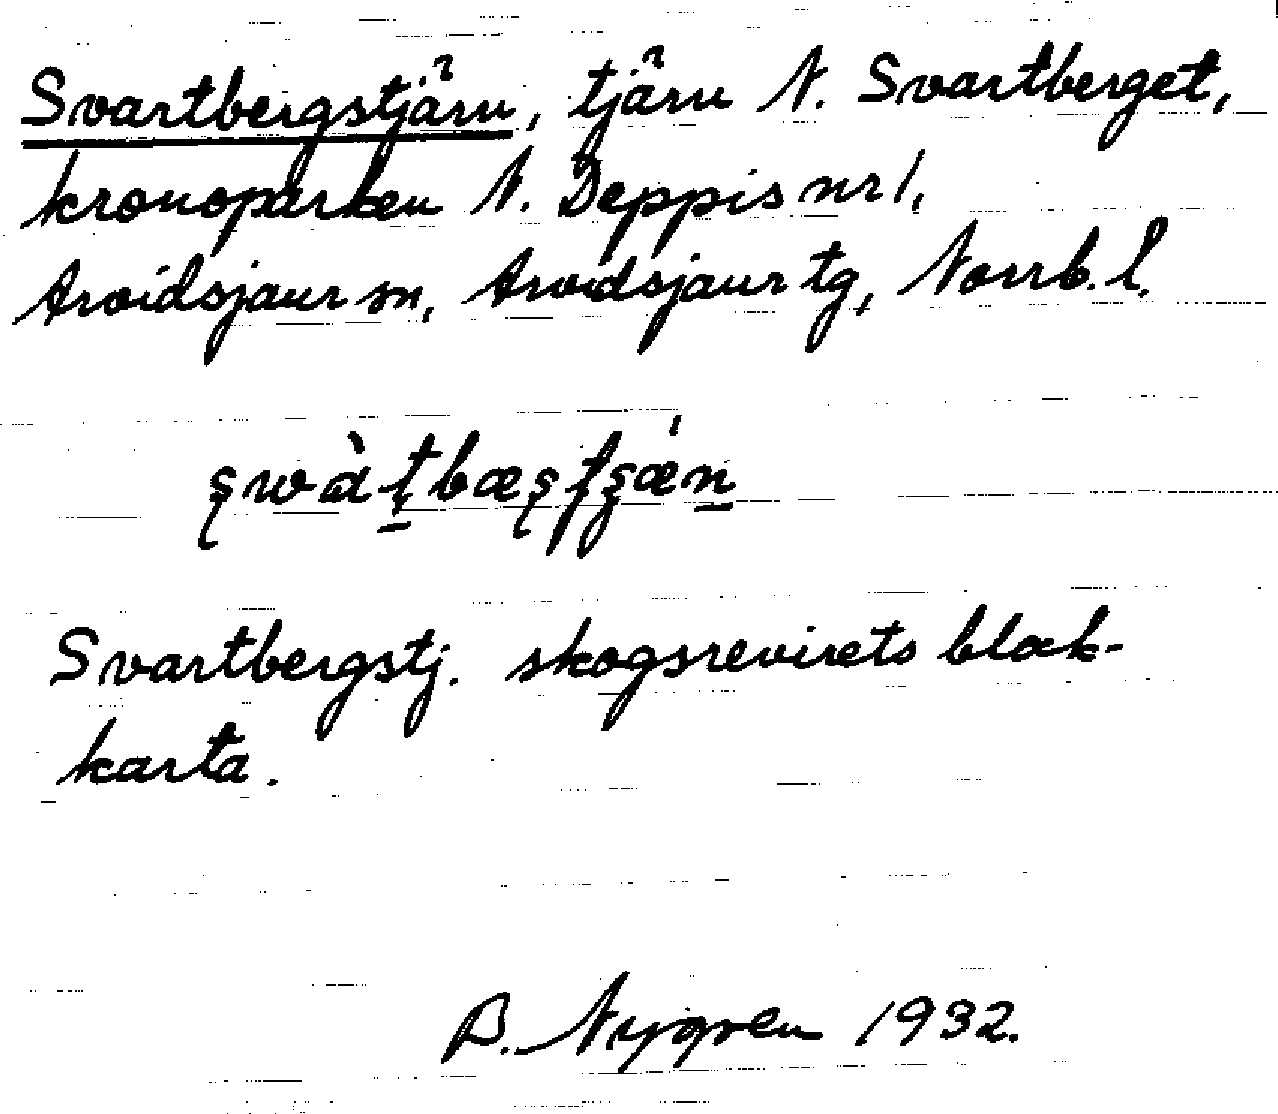 Svartbergstjärn, tjärn N. Svartberget,
kronoparken N. Deppis nr 1,
Arvidsjaur sn, Arvidsjaur tg, Norrb. l.
Svartbergstj. skogsrevirets block-
karta.
B. Nygren 1932.